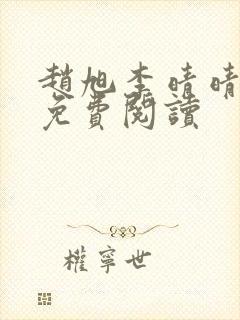 趙旭李晴晴
免費閱讀
權寧世